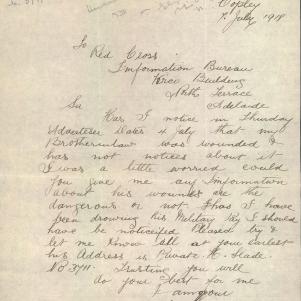 Copley
7 July 1918
To Red Cross
Information Bureau
Verco Building
North Terrace
Adelaide
Sir
Has I notice in Thursday
Adverteser Dated 4 July that my
Brotherinlaw was wounded &
has not notices about it
I was a little worried could
You give me any Information
about his wounds are the
dangerous or not Has I have
been drowing his Military Pay I should
have be noticeifed Pleased by &
let me Know all at your Earlest
his Address is Private H. Slade
No 3711. Trusting you will
do your best for me
I am yours